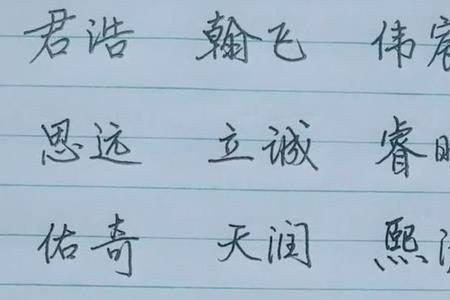 君浩 翰飞 伟宸
思远 立诚 睿
佑奇 天润 熙